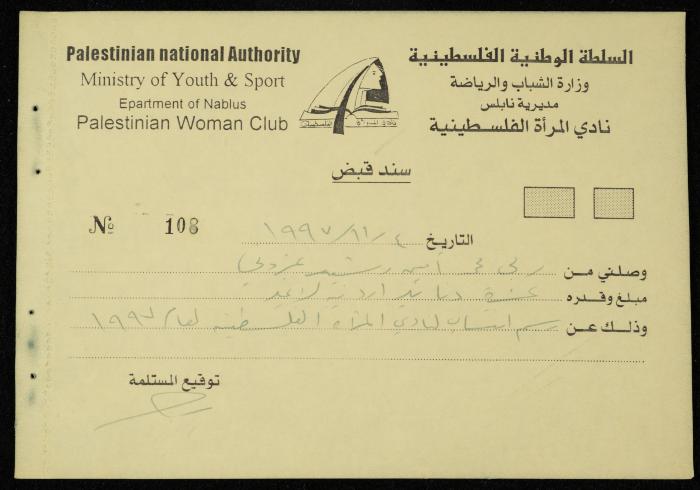 Palestinian national Authority
Ministry of Youth & Sport
Epartment of Nablus
Palestinian Woman Club
السلطة الوطنية الفلسطينية
وزارة الشباب والرياضة
مديرية نابلس
نادي المرأة الفلسطينية
نادي المرأة الفلسطينية
سند قبض
№ 108
التاريخ ٤/١١/١٩٩٧
وصلني من أمين رشيد
مبلغ وقدره عشرة دنانير اردنية لا غير
وذلك عن رسم انتساب لنادي المرأة الفلسطينية لعام ١٩٩٧
توقيع المستلمة